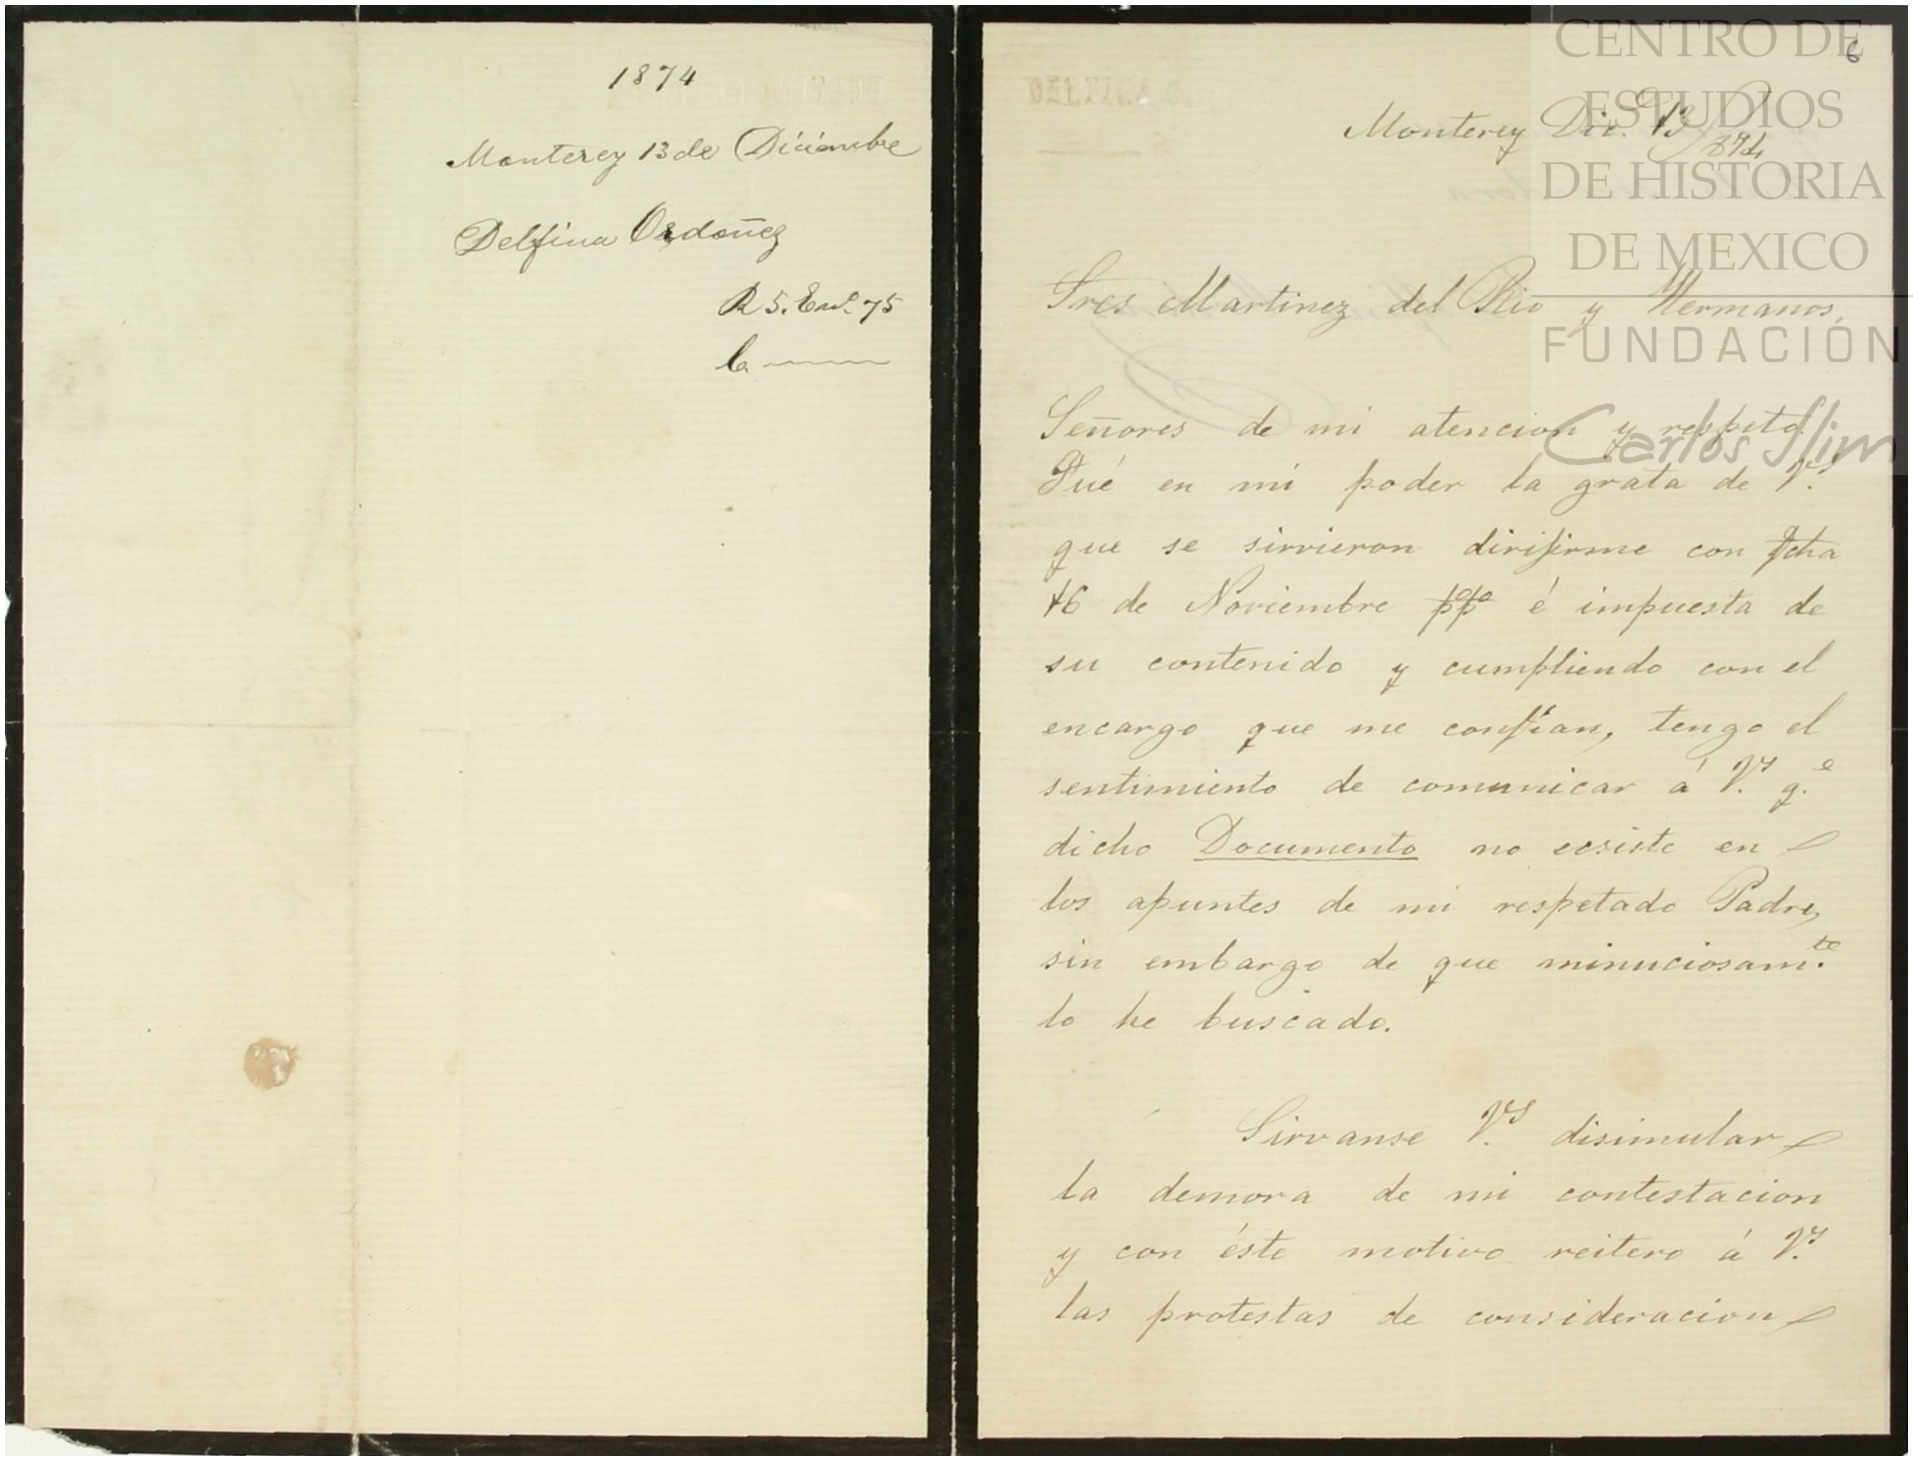 1874
Monterey 13 de Diciembre
Delfina Ordoñez
R 5. En.º 75
C
6
Monterey Dic.e 13/874
Sres Martinez del Rio y Hermanos,
Señores de mi atencion y respeto.
Fué en mi poder la grata de V.s
que se sirvieron dirijirme con fcha
16 de Noviembre ppº é impuesta de
su contenido y cumpliendo con el
encargo que me confian, tengo el
sentimiento de comunicar á V.s q.e
dicho Documento no ecsiste en
los apuntes de mi respetado Padre,
sin embargo de que minuciosam.te
lo he buscado.
Sirvanse V.s disimular
la demora de mi contestacion
y con éste motivo reitero á V.s
las protestas de consideracion
CENTRO DE
ESTUDIOS
DE HISTORIA
DE MEXICO
FUNDACIÓN
Carlos Slim